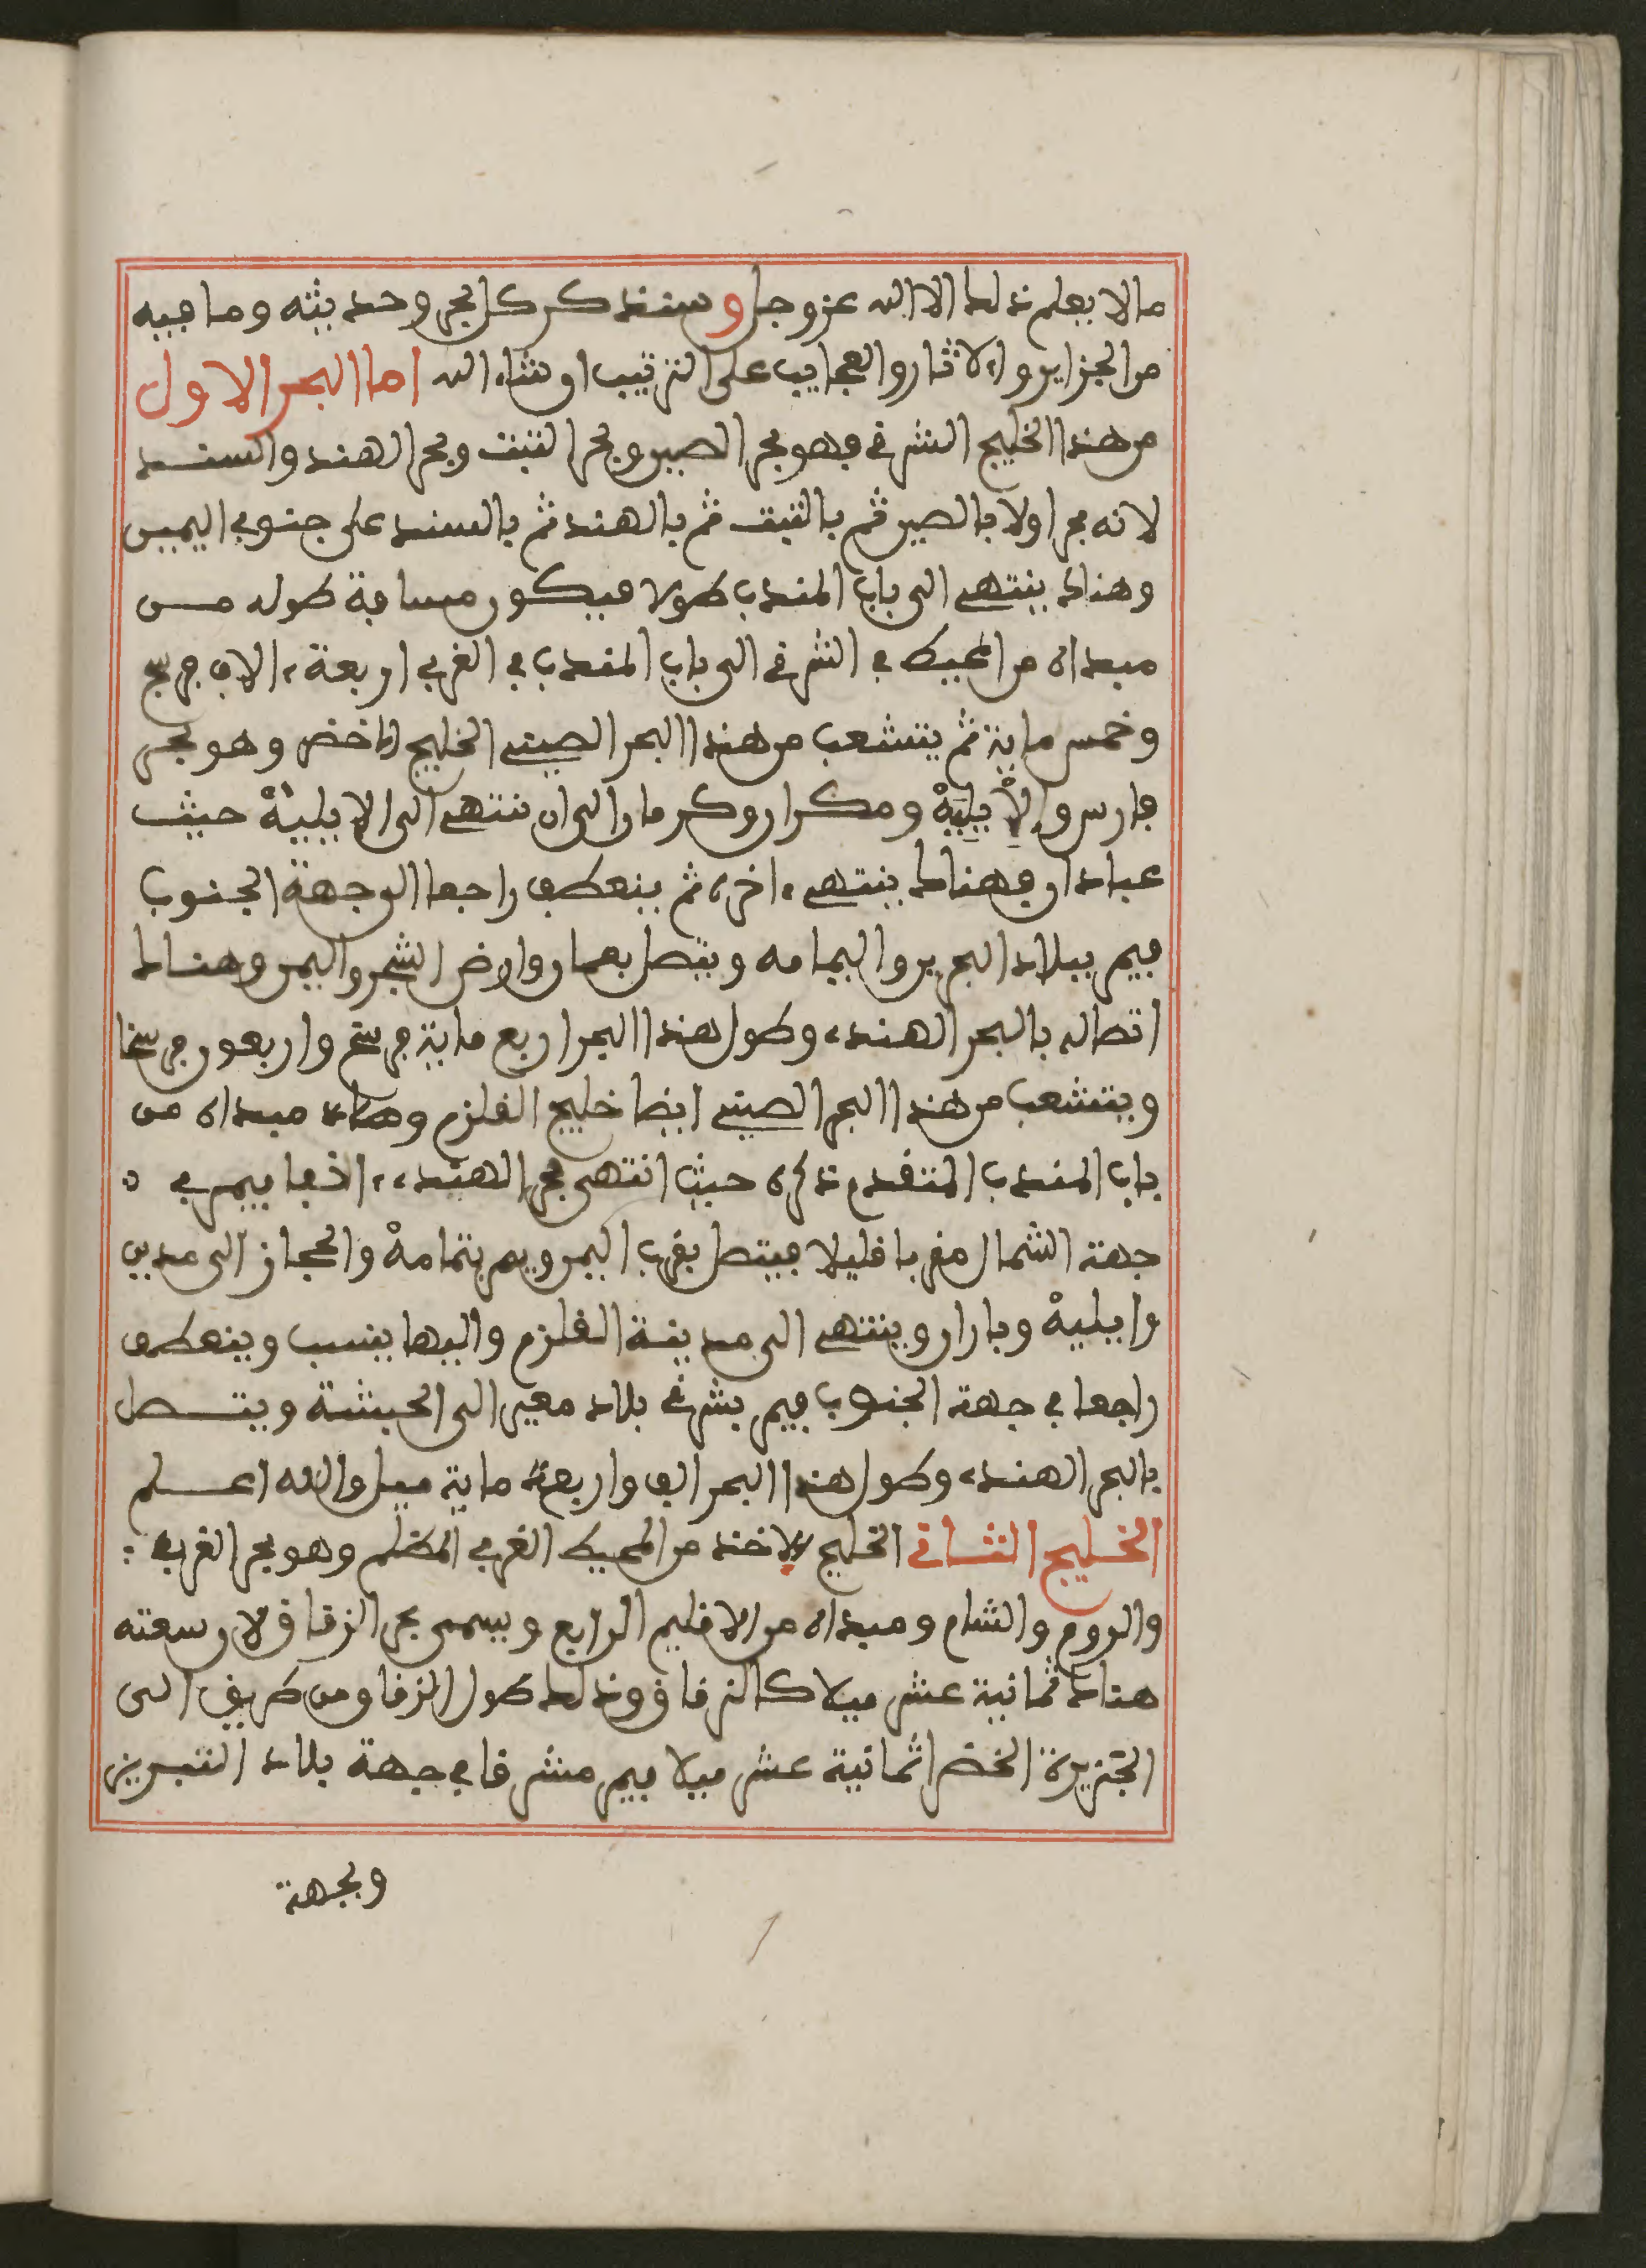 ما لا يعلم ذلك الا الله عز وجل وسنذكر كل بحر وحديثه وما فيه
من الجزاير والاثار والعجايب على الترتيب ان شاء الله اما البحر الاول
من هذا الخليج الشرقي فهو بحر الصين وبحر التبت وبحر الهند والسند
لانه يجرا اولا بالصين ثم بالتبت ثم بالهند ثم بالسند على جنوبي اليمين
وهناك ينتهي الى باب المندب طولا فيكون مسافة طوله من
مبداه من المحيط في الشرقي الى باب المندب في الغربي اربعة الاف فرسخ
وخمس ماية ثم يتشعب من هذا البحر الصيني الخليج الاخضر وهو بحر
فارس والابلية ومكران وكرمان الى ان تنتهي الى الابلية حيث
عبادان فهناك ينتهي اخره ثم ينعطف راجعا الى جهة الجنوب
فيمر ببلاد البحرين واليمامه ويتصل بعمان وارض الشحر واليمن وهناك
اتصاله بالبحر الهندي وطول هذا البحر اربع ماية فرسخ واربعون فرسخا
ويتشعب من هذا البحر الصيني ايضا خليج القلزم وهناك مبداه من
باب المندب المتقدم ذكره حيث انتهى بحر الهندي اخفا فيمر في
جهة الشمال مغربا قليلا فيتصل بغرب اليمن ويمر بتهامة والحجاز الى مدين
وايلية وباران وينتهي الى مدينة القلزم واليها ينسب وينعطف
راجعا في جهة الجنوب فيمر بشرقي بلاد معير الى الحبشة ويتصل
بالبحر الهندي وطول هذا البحر الف واربعة ماية ميل والله اعلم
الخليج الثاني الخليج الاخذ من المحيط الغربي المظلم وهو بحر الغرب
والروم والشام ومبداه من الاقليم الرابع ويسمى بحر الزقاق لان سعته
هناك ثمانية عشر ميلا كالزقاق وذلك طول الزقاق من طريف الى
الجزيرة الخضرا ثمانية عشر ميلا فيمر مشرقا في جهة بلاد التبرين
وبجهة